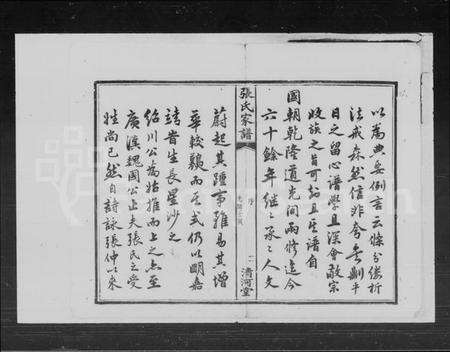 以為典要例言云條分縷析
法戒森然信非
日之留心譜學且深會敬宗
收族之旨可知且是譜自
國朝乾隆道光間兩修迄今
六十餘年繼繼承承人文
張氏家譜
序
二
清河堂
蔚起其踵事雖易其增
華較難而是式仍以明嘉
靖晉生長星沙之
紹川公為始推而上之亦至
廣漢魏國公止夫張氏之受
姓尚已然自詩詠張仲以來